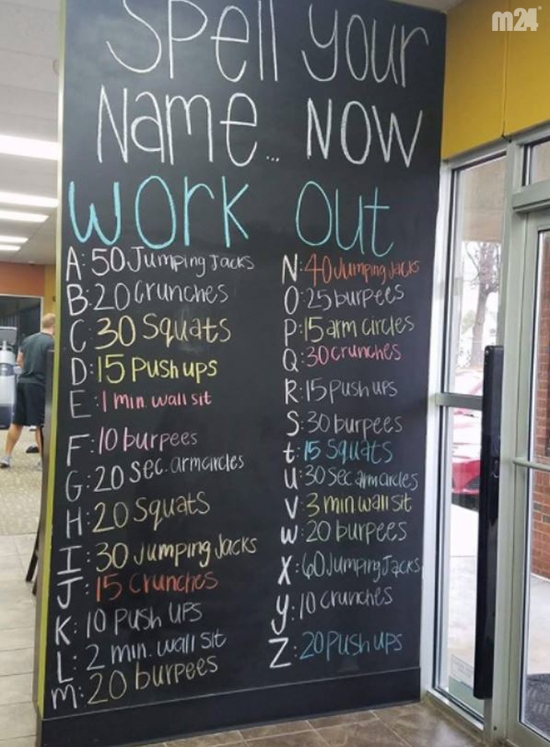 m24
Spell your
Name... NOW
work out
A: 50 Jumping Jacks
B: 20 Crunches
C: 30 Squats
D: 15 Push ups
E: 1 min. wall sit
F: 10 burpees
G: 20 sec. armcircles
H: 20 Squats
I: 30 Jumping Jacks
J: 15 Crunches
K: 10 Push ups
L: 2 min. wall sit
M: 20 burpees
N: 40 Jumping Jacks
O: 25 burpees
P: 15 arm circles
Q: 30 crunches
R: 15 push ups
S: 30 burpees
t: 15 Squats
U: 30 sec armcircles
V: 3 min wall sit
W: 20 burpees
X: 60 Jumping Jacks
y: 10 crunches
Z: 20 push ups